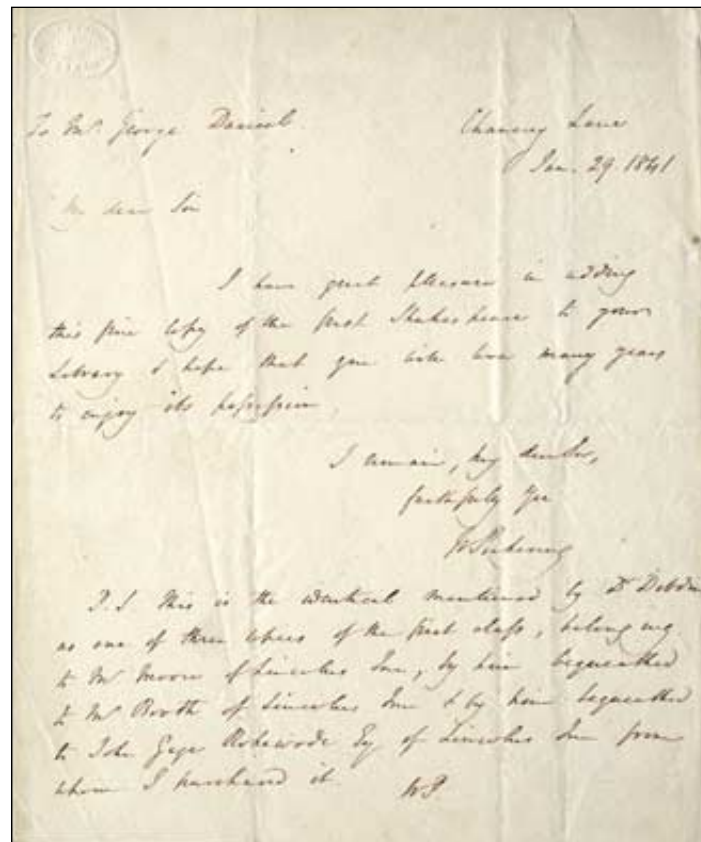 To Mr. George Daniel.
Chancery Lane
Jan. 29. 1841
My dear Sir
I have great pleasure in adding
this fine copy of the first Shakespeare to your
Library & hope that you will live many years
to enjoy its possession,
I remain, my dear Sir,
faithfully Yrs
W Pickering
P.S This is the identical mentioned by Dr Dibdin
as one of three copies of the first class, belonging
to Mr Moore of Lincolns Inn, by him bequeathed
to Mr Booth of Lincolns Inn & by him bequeathed
to John Gage Rokewode Esq of Lincolns Inn from
whom I purchased it.
WP.